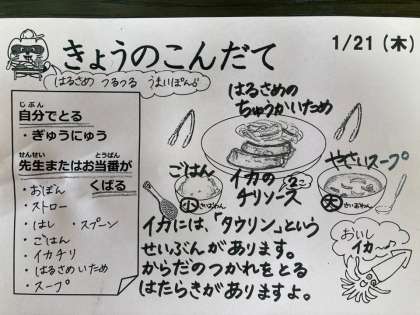 きょうのこんだて
1/21（木）
はるさめ つるつる うまいぽんぷ
じぶん
自分でとる
・ぎゅうにゅう
せんせい とうばん
先生またはお当番が
くばる
・おぼん
・ストロー
・はし ・スプーン
・ごはん
・イカチリ
・はるさめいため
・スープ
はるさめの
ちゅうかいため
ごはん
小
さいおわん
イカの
チリソース
2こ
やさいスープ
大
きいおわん
イカには、「タウリン」という
せいぶんがあります。
からだのつかれをとる
はたらきがありますよ。
おいし
イカ〜